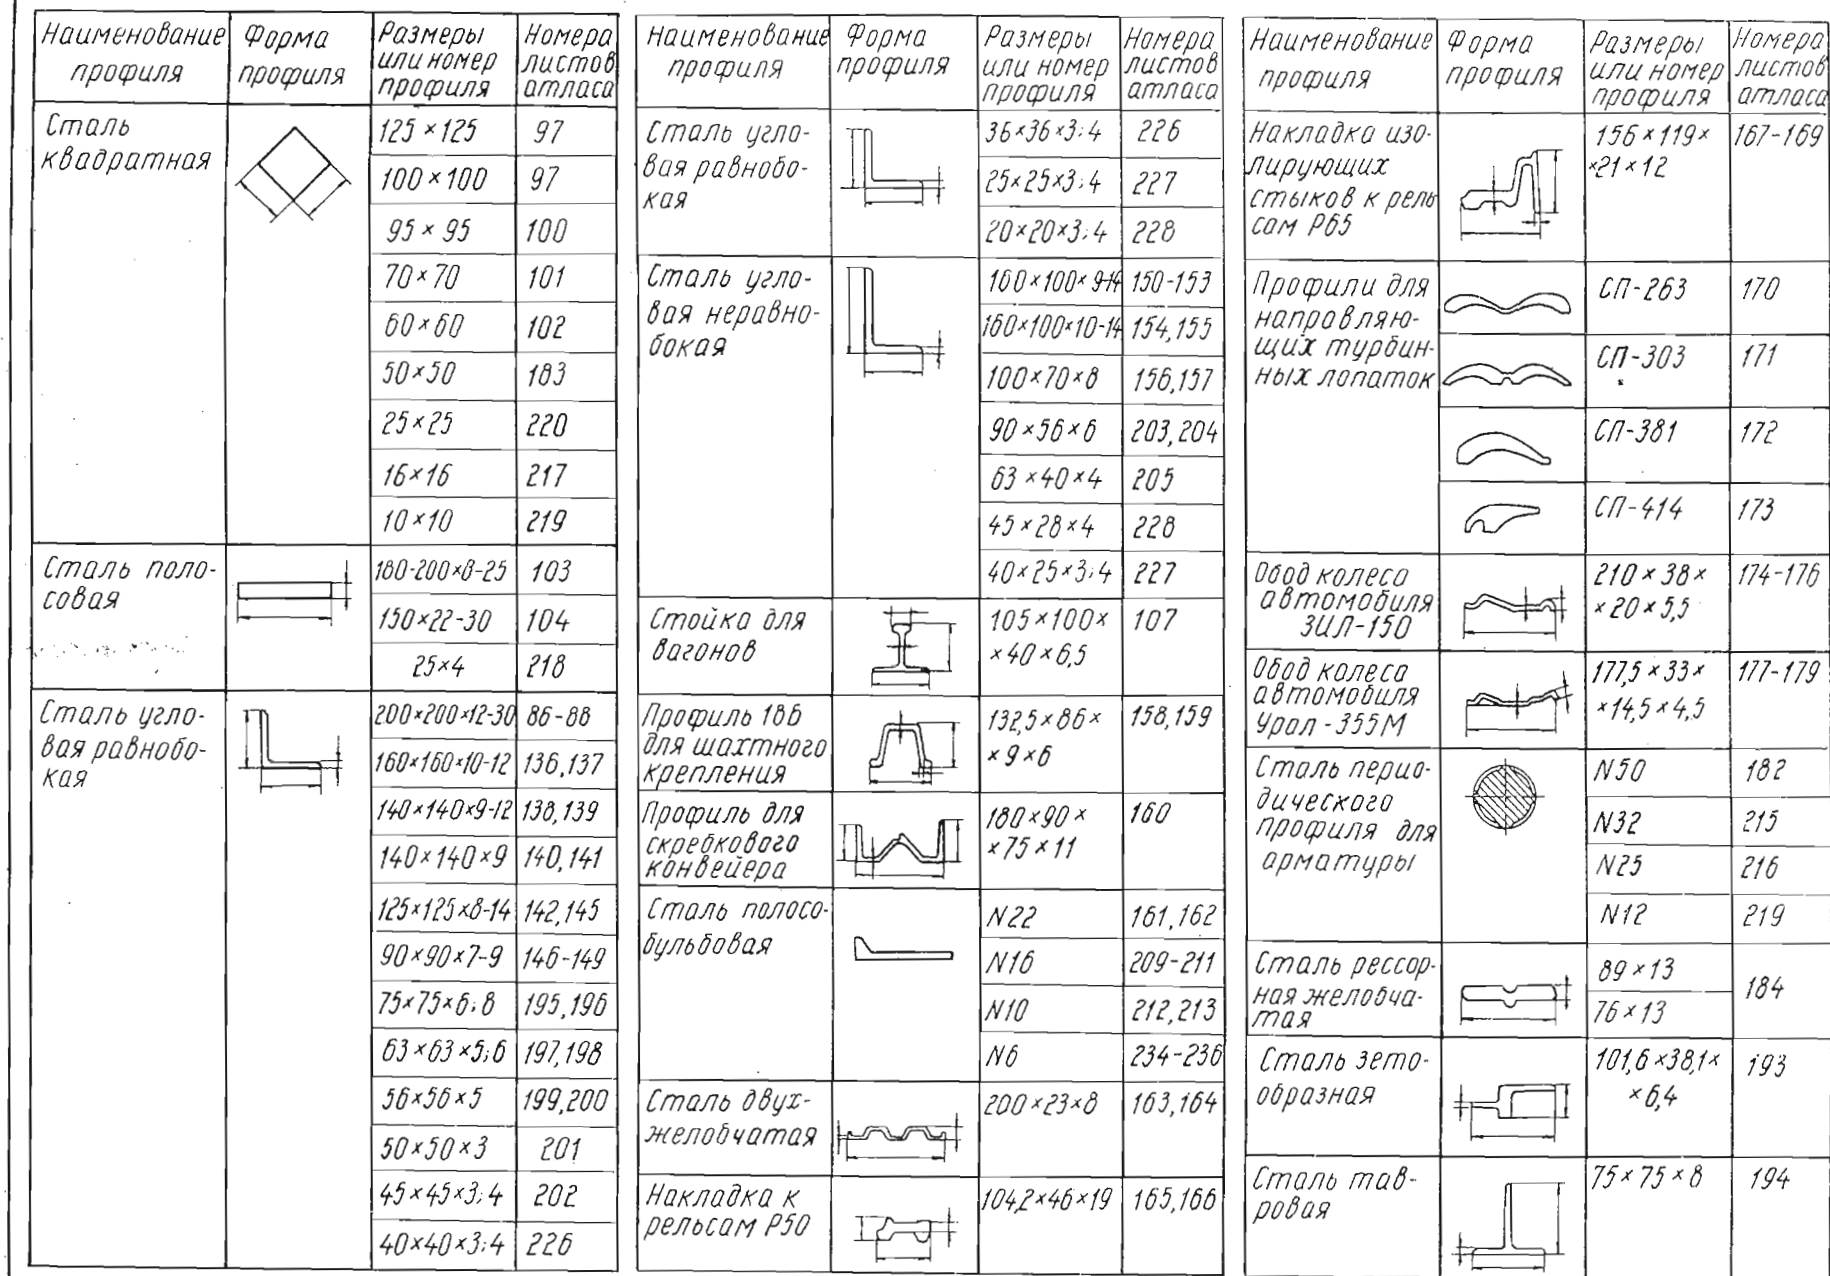 Наименование профиля | Форма профиля | Размеры или номер профиля | Номера листов атласа
Сталь квадратная | 125×125 | 97
100×100 | 97
95×95 | 100
70×70 | 101
60×60 | 102
50×50 | 183
25×25 | 220
16×16 | 217
10×10 | 219
Сталь полосовая | 180-200×8-25 | 103
150×22-30 | 104
25×4 | 218
Сталь угловая равнобокая | 200×200×12-30 | 86-88
160×160×10-12 | 136,137
140×140×9-12 | 138,139
140×140×9 | 140,141
125×125×8-14 | 142,145
90×90×7-9 | 146-149
75×75×6;8 | 195,196
63×63×5;6 | 197,198
56×56×5 | 199,200
50×50×3 | 201
45×45×3;4 | 202
40×40×3;4 | 226
Наименование профиля | Форма профиля | Размеры или номер профиля | Номера листов атласа
Сталь угловая равнобокая | 36×36×3;4 | 226
25×25×3;4 | 227
20×20×3;4 | 228
Сталь угловая неравнобокая | 160×100×9-14 | 150-153
160×100×10-14 | 154,155
100×70×8 | 156,157
90×56×6 | 203,204
63×40×4 | 205
45×28×4 | 228
40×25×3;4 | 227
Стойка для вагонов | 105×100××40×6,5 | 107
Профиль 18б для шахтного крепления | 132,5×86××9×6 | 158,159
Профиль для скребкового конвейера | 180×90××75×11 | 160
Сталь полособульбовая | N22 | 161,162
N16 | 209-211
N10 | 212,213
N6 | 234-236
Сталь двухжелобчатая | 200×23×8 | 163,164
Накладка к рельсам Р50 | 104,2×46×19 | 165,166
Наименование профиля | Форма профиля | Размеры или номер профиля | Номера листов атласа
Накладка изолирующих стыков к рельсам Р65 | 156×119××21×12 | 167-169
Профили для направляющих турбинных лопаток | СП-263 | 170
СП-303 | 171
СП-381 | 172
СП-414 | 173
Обод колеса автомобиля ЗИЛ-150 | 210×38××20×5,5 | 174-176
Обод колеса автомобиля Урал-355М | 177,5×33××14,5×4,5 | 177-179
Сталь периодического профиля для арматуры | N50 | 182
N32 | 215
N25 | 216
N12 | 219
Сталь рессорная желобчатая | 89×13 | 184
76×13
Сталь зетообразная | 101,6×38,1××6,4 | 193
Сталь тавровая | 75×75×8 | 194